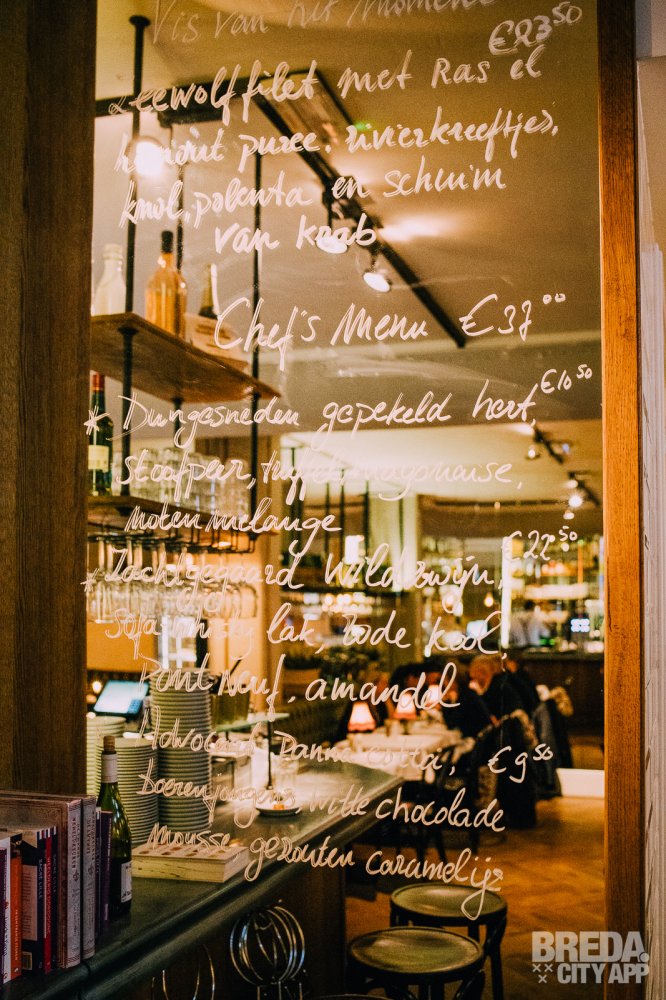 Vis van het moment
€23⁵⁰
Zeewolffilet met Ras el
hanout puree, rivierkreeftjes,
knol, polenta en schuim
van krab
Chef's Menu €37⁰⁰
* Dungesneden gepekeld hert, €10⁵⁰
stoofpeer, truffel mayonaise,
noten melange
* Zachtgegaard Wildzwijn, €22⁵⁰
lak, rode kool,
Pont Neuf, amandel
Advocaat Panna cotta, €9⁵⁰
boerenjongens, witte chocolade
mousse, gezouten caramelijs
BREDA.
CITY APP